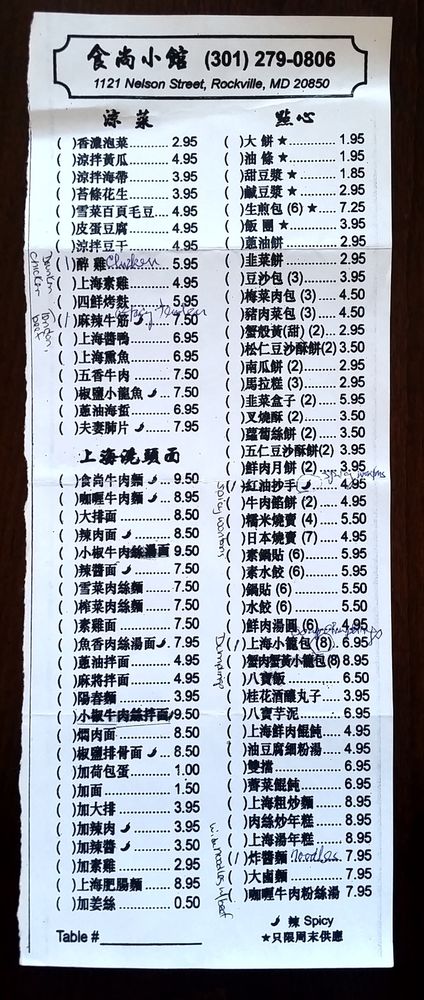 食尚小館 (301) 279-0806
1121 Nelson Street, Rockville, MD 20850
涼菜
( )香濃泡菜.......... 2.95
( )涼拌黃瓜.......... 4.95
( )涼拌海帶.......... 3.95
( )苔條花生.......... 3.95
( )雪菜百頁毛豆.... 4.95
( )皮蛋豆腐.......... 4.95
( )涼拌豆干.......... 4.95
(1)醉雞 Chicken 5.95
Drunken Chicken
( )上海素雞.......... 4.95
( )四鮮烤麩.......... 5.95
(1)麻辣牛筋.......... 7.50
( )上海醬鴨.......... 6.95
( )上海燻魚.......... 6.95
( )五香牛肉.......... 7.50
( )椒鹽小龍魚..... 7.50
( )蔥油海蜇.......... 6.95
( )夫妻肺片.......... 7.95
上海澆頭面
( )食尚牛肉麵..... 9.50
( )咖喱牛肉麵..... 8.95
( )大排面............ 8.50
( )辣肉面............ 8.50
( )小椒牛肉絲湯面 9.50
( )辣醬面............ 7.50
( )雪菜肉絲麵....... 7.50
( )榨菜肉絲麵....... 7.50
( )素雞面............ 7.50
( )魚香肉絲湯面.. 7.95
( )蔥油拌面.......... 4.95
( )麻將拌面.......... 4.95
( )陽春麵............ 3.95
( )小椒牛肉絲拌面 9.50
( )燜肉面............ 8.50
( )椒鹽排骨面..... 8.50
( )加荷包蛋.......... 1.00
( )加面............... 1.50
( )加大排............ 3.95
( )加辣肉............ 3.95
( )加辣醬............ 3.50
( )加素雞............ 2.95
( )上海肥腸麵....... 8.95
( )加姜絲............ 0.50
Table #
點心
( )大餅★............ 1.95
( )油條★............ 1.95
( )甜豆漿★.......... 1.85
( )鹹豆漿★.......... 2.95
( )生煎包 (6)★..... 7.25
( )飯團★............ 3.95
( )蔥油餅............ 2.95
( )韭菜餅............ 2.95
( )豆沙包 (3)........ 3.95
( )梅菜肉包 (3)..... 4.50
( )豬肉菜包 (3)..... 4.50
( )蟹殼黃(甜) (2)... 2.95
( )松仁豆沙酥餅(2) 3.50
( )南瓜餅 (2)........ 2.95
( )馬拉糕 (3)........ 2.95
( )韭菜盒子 (2)..... 5.95
( )叉燒酥 (2)........ 3.50
( )蘿蔔絲餅 (2)..... 3.50
( )五仁豆沙酥餅(2) 3.95
( )鮮肉月餅 (2)..... 3.95
(1)紅油抄手.......... 4.95
Spicy wontons
( )牛肉餡餅 (2)..... 4.95
( )糯米燒賣 (4)..... 5.50
( )日本燒賣 (7)..... 4.95
( )素鍋貼 (6)........ 5.95
( )素水餃 (6)........ 5.95
( )鍋貼 (6).......... 5.50
( )水餃 (6).......... 5.50
( )鮮肉湯圓 (6)..... 4.95
(1)上海小籠包 (8).. 6.95
Dumplings
( )蟹肉蟹黃小籠包(8) 8.95
( )八寶飯............ 6.50
( )桂花酒釀丸子.... 3.95
( )八寶芋泥.......... 6.95
( )上海鮮肉餛飩.... 4.95
( )油豆腐細粉湯.... 4.95
( )雙擋............... 4.95
( )薺菜餛飩.......... 6.95
( )上海粗炒麵....... 8.95
( )肉絲炒年糕....... 8.95
( )上海湯年糕....... 8.95
(1)炸醬麵 Noodles 7.95
( )大鹵麵............ 7.95
( )咖喱牛肉粉絲湯 7.95
辣 Spicy
★只限周末供應